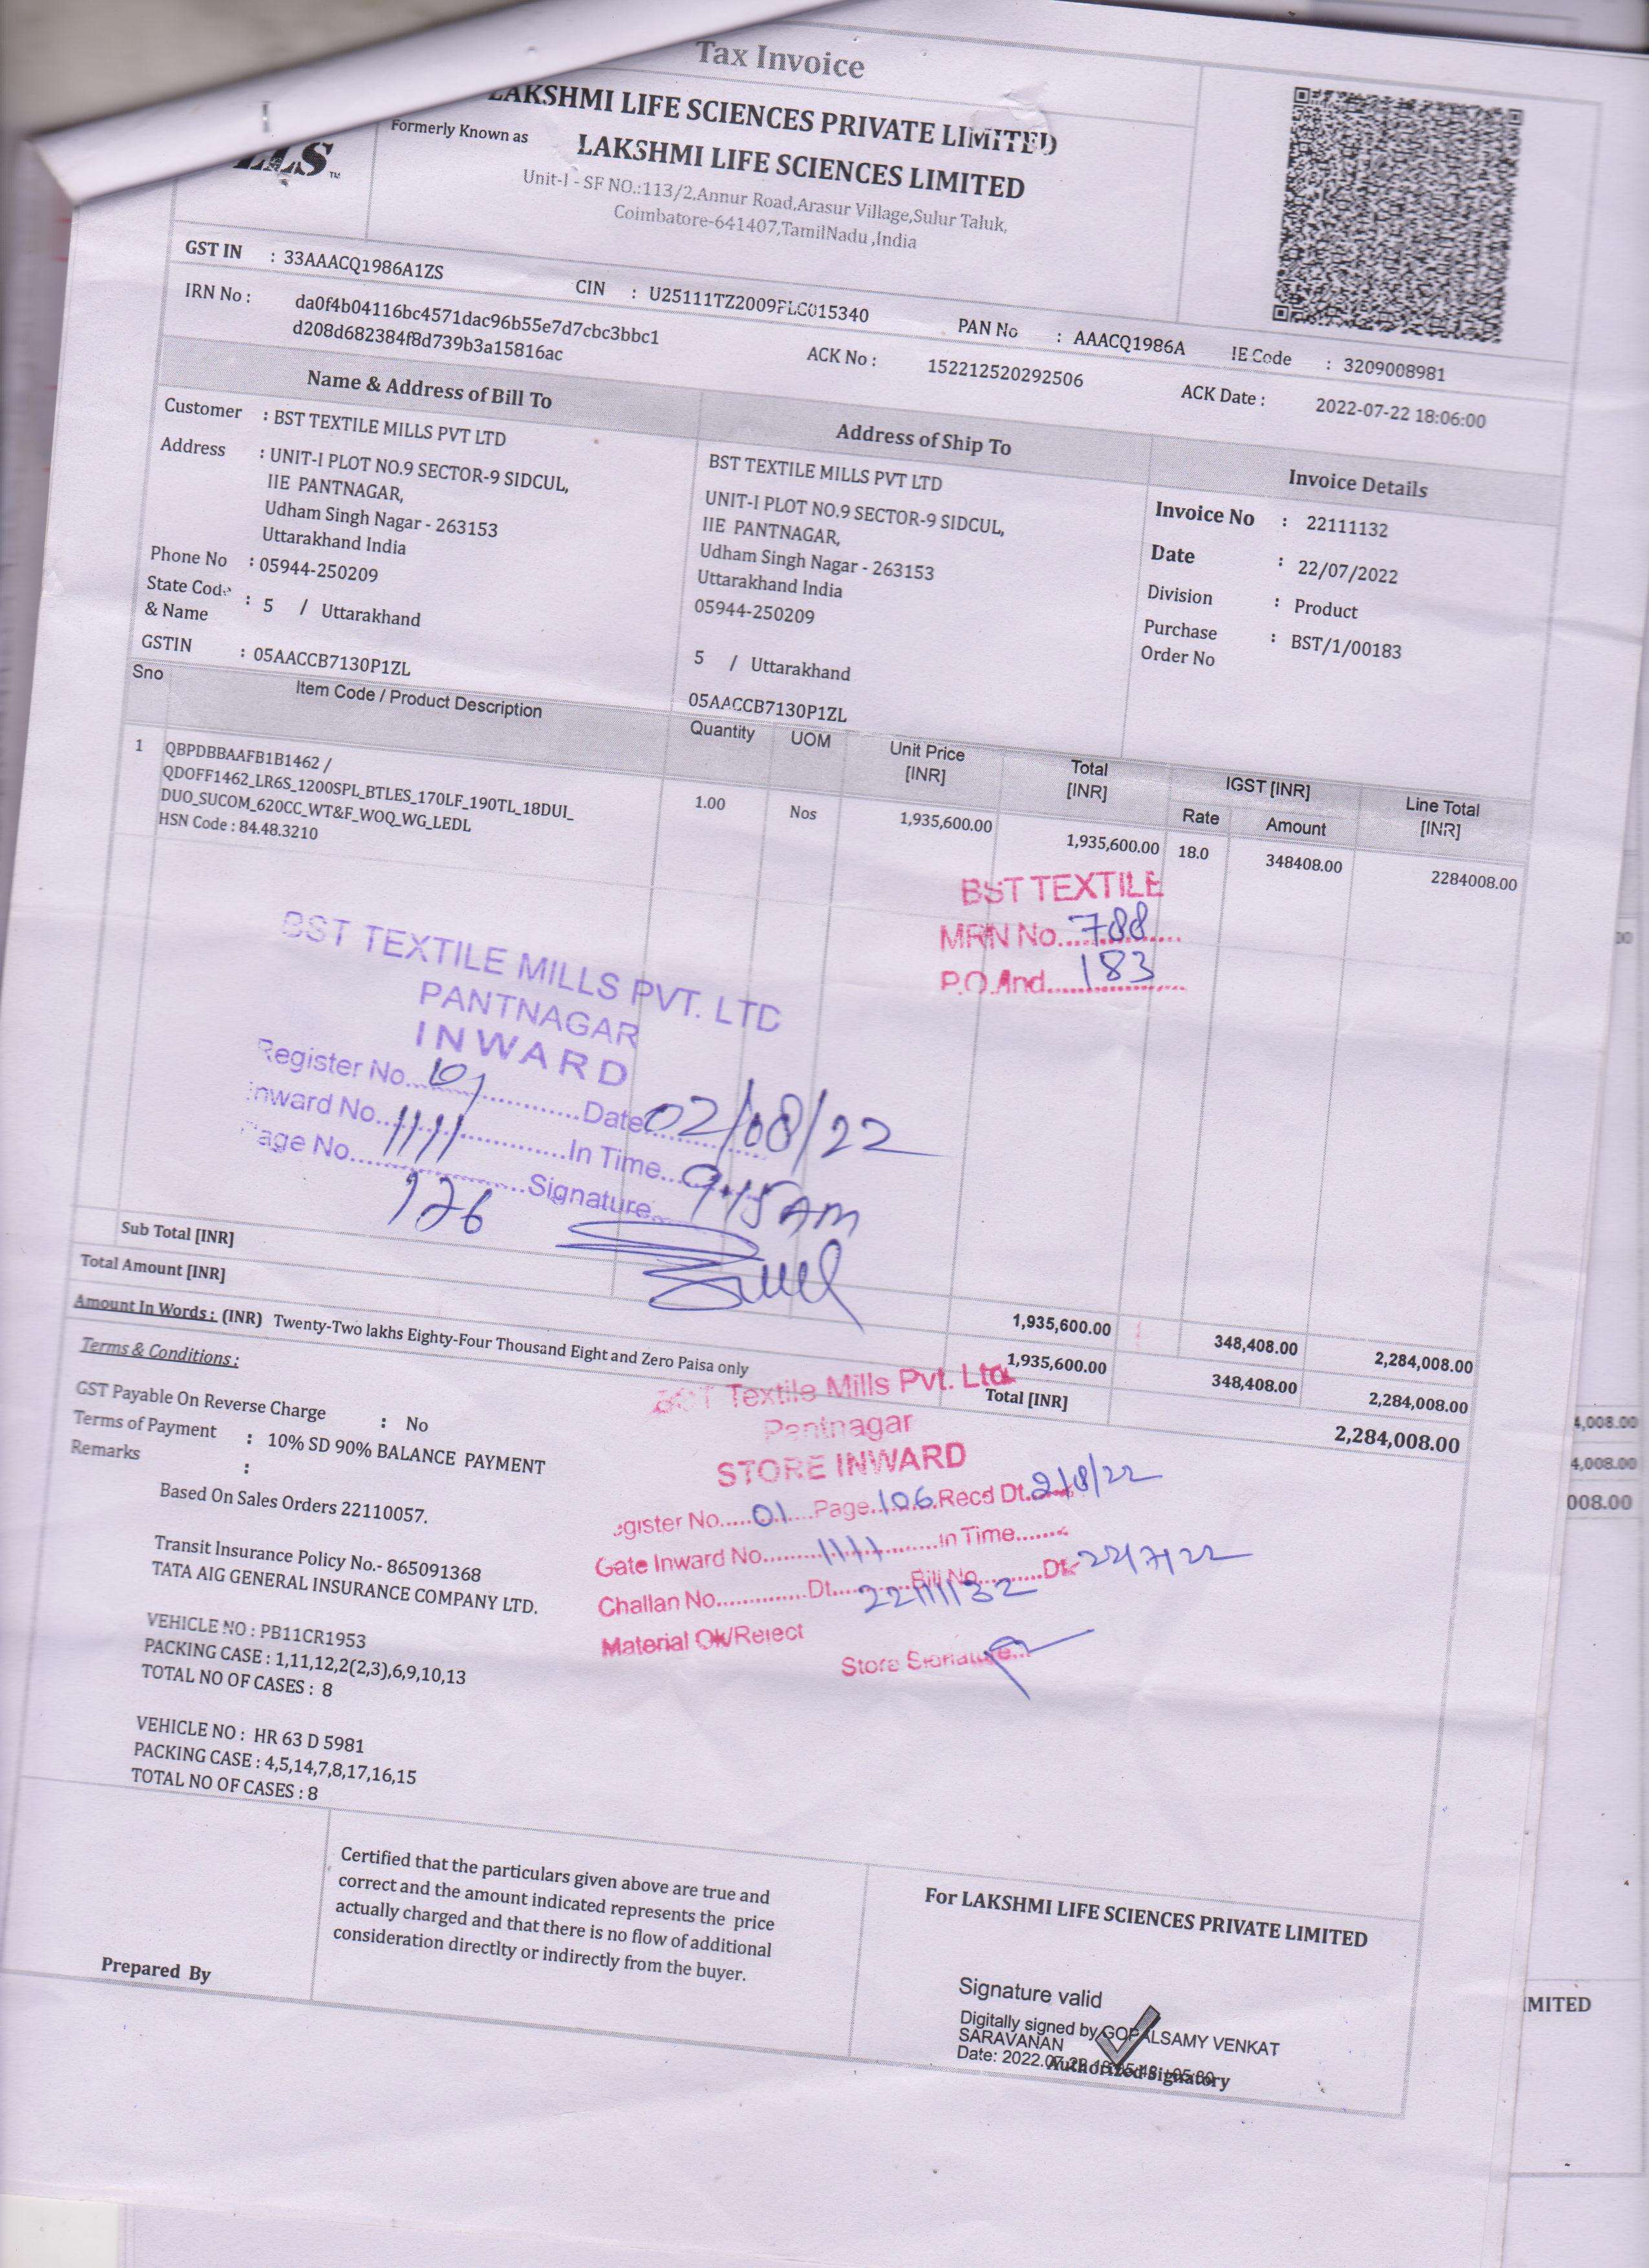 Tax Invoice
LAKSHMI LIFE SCIENCES PRIVATE LIMITED
Formerly Known as LAKSHMI LIFE SCIENCES LIMITED
LLS TM
Unit-I - SF NO.:113/2,Annur Road,Arasur Village,Sulur Taluk,
Coimbatore-641407,TamilNadu ,India
GST IN : 33AAACQ1986A1ZS CIN : U25111TZ2009PLC015340 PAN No : AAACQ1986A IE Code : 3209008981
IRN No : da0f4b04116bc4571dac96b55e7d7cbc3bbc1
d208d682384f8d739b3a15816ac
ACK No : 152212520292506 ACK Date : 2022-07-22 18:06:00
Name & Address of Bill To
Customer : BST TEXTILE MILLS PVT LTD
Address : UNIT-I PLOT NO.9 SECTOR-9 SIDCUL,
IIE PANTNAGAR,
Udham Singh Nagar - 263153
Uttarakhand India
Phone No : 05944-250209
State Code
& Name : 5 / Uttarakhand
GSTIN : 05AACCB7130P1ZL
Address of Ship To
BST TEXTILE MILLS PVT LTD
UNIT-I PLOT NO.9 SECTOR-9 SIDCUL,
IIE PANTNAGAR,
Udham Singh Nagar - 263153
Uttarakhand India
05944-250209
5 / Uttarakhand
05AACCB7130P1ZL
Invoice Details
Invoice No : 22111132
Date : 22/07/2022
Division : Product
Purchase
Order No : BST/1/00183
Sno Item Code / Product Description Quantity UOM Unit Price [INR] Total [INR] IGST [INR] Rate Amount Line Total [INR]
1 QBPDBBAAFB1B1462 / 1.00 Nos 1,935,600.00 1,935,600.00 18.0 348408.00 2284008.00
QDOFF1462_LR6S_1200SPL_BTLES_170LF_190TL_18DUI_
DUO_SUCOM_620CC_WT&F_WOQ_WG_LEDL
HSN Code : 84.48.3210
BST TEXTILE
MRN No. 788
P.O.And 183
BST TEXTILE MILLS PVT. LTD
PANTNAGAR
INWARD
Register No. 01 Date 02/08/22
Inward No. 1111 In Time 9.15 AM
Page No. 126 Signature
Sub Total [INR] 1,935,600.00 348,408.00 2,284,008.00
Total Amount [INR] 1,935,600.00 348,408.00 2,284,008.00
Amount In Words : (INR) Twenty-Two lakhs Eighty-Four Thousand Eight and Zero Paisa only
Total [INR] 2,284,008.00
Terms & Conditions :
GST Payable On Reverse Charge : No
Terms of Payment : 10% SD 90% BALANCE PAYMENT
Remarks :
Based On Sales Orders 22110057.
Transit Insurance Policy No.- 865091368
TATA AIG GENERAL INSURANCE COMPANY LTD.
VEHICLE NO : PB11CR1953
PACKING CASE : 1,11,12,2(2,3),6,9,10,13
TOTAL NO OF CASES : 8
VEHICLE NO : HR 63 D 5981
PACKING CASE : 4,5,14,7,8,17,16,15
TOTAL NO OF CASES : 8
BST Textile Mills Pvt. Ltd.
Pantnagar
STORE INWARD
Register No. 01 Page 106 Recd Dt. 2/8/22
Gate Inward No. 1111 In Time
Challan No. Dt. Bill No. 22111132 Dt. 22/7/22
Material Ok/Reject
Store Signature
Certified that the particulars given above are true and
correct and the amount indicated represents the price
actually charged and that there is no flow of additional
consideration directlty or indirectly from the buyer.
Prepared By
For LAKSHMI LIFE SCIENCES PRIVATE LIMITED
Signature valid
Digitally signed by GOPALSAMY VENKAT
SARAVANAN
Date: 2022.07.22
Authorized Signatory
4,008.00
4,008.00
008.00
IMITED